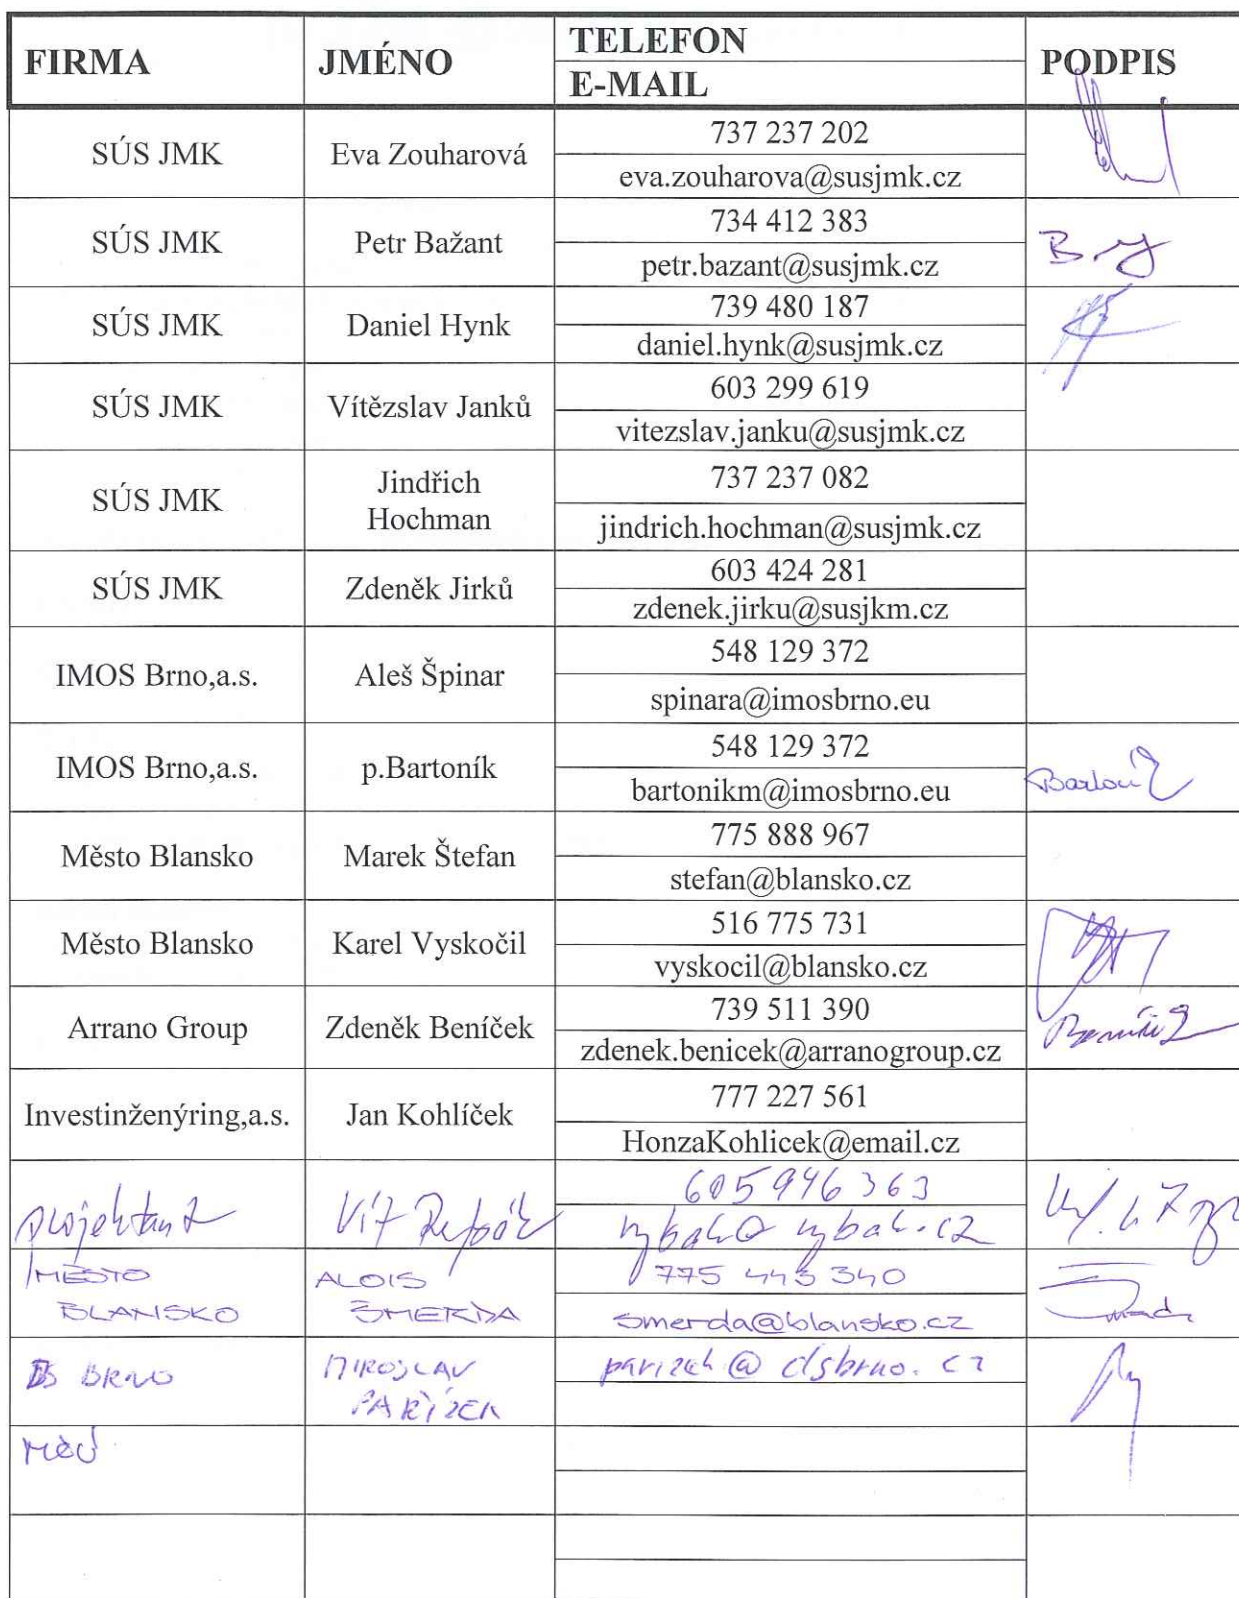 FIRMA JMÉNO TELEFON PODPIS
E-MAIL
SÚS JMK Eva Zouharová 737 237 202
eva.zouharova@susjmk.cz
SÚS JMK Petr Bažant 734 412 383
petr.bazant@susjmk.cz
SÚS JMK Daniel Hynk 739 480 187
daniel.hynk@susjmk.cz
SÚS JMK Vítězslav Janků 603 299 619
vitezslav.janku@susjmk.cz
SÚS JMK Jindřich Hochman 737 237 082
jindrich.hochman@susjmk.cz
SÚS JMK Zdeněk Jirků 603 424 281
zdenek.jirku@susjkm.cz
IMOS Brno,a.s. Aleš Špinar 548 129 372
spinara@imosbrno.eu
IMOS Brno,a.s. p.Bartoník 548 129 372
bartonikm@imosbrno.eu
Město Blansko Marek Štefan 775 888 967
stefan@blansko.cz
Město Blansko Karel Vyskočil 516 775 731
vyskocil@blansko.cz
Arrano Group Zdeněk Beníček 739 511 390
zdenek.benicek@arranogroup.cz
Investinženýring,a.s. Jan Kohlíček 777 227 561
HonzaKohlicek@email.cz
projektant Vít 605 946 363
MĚSTO ALOIS 775 443 340
BLANSKO ŠMERDA smerda@blansko.cz
DS BRNO MIROSLAV parizek@dsbrno.cz
PAŘÍZEK